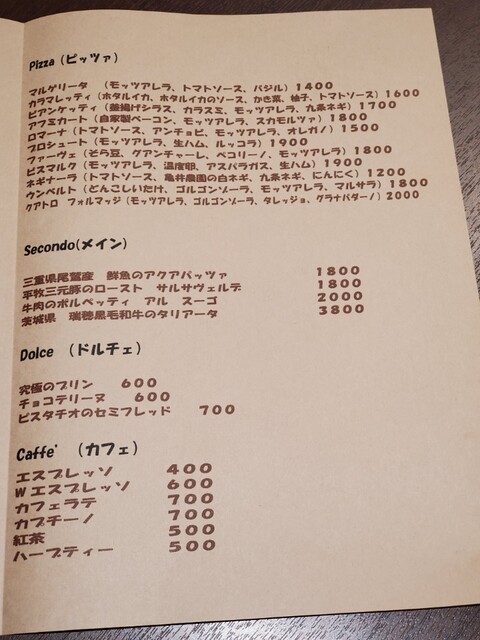 Pizza (ピッツァ)
マルゲリータ （モッツアレラ、トマトソース、バジル） 1400
カラマレッティ （ホタルイカ、ホタルイカのソース、かき菜、柚子、トマトソース） 1600
ビアンケッティ （釜揚げシラス、カラスミ、モッツアレラ、九条ネギ） 1700
アフミカート （自家製ベーコン、モッツアレラ、スカモルツァ） 1800
ロマーナ （トマトソース、アンチョビ、モッツアレラ、オレガノ） 1500
プロシュート （モッツアレラ、生ハム、ルッコラ） 1900
ファーヴェ （そら豆、グアンチャーレ、ペコリーノ、モッツアレラ） 1800
ビスマルク （モッツアレラ、温度卵、アスパラガス、生ハム） 1900
ネギナーラ （トマトソース、亀井農園の白ネギ、九条ネギ、にんにく） 1200
ウンベルト （どんこしいたけ、ゴルゴンゾーラ、モッツアレラ、マルサラ） 1800
クアトロ フォルマッジ （モッツアレラ、ゴルゴンゾーラ、タレッジョ、グラナパダーノ） 2000
Secondo(メイン)
三重県尾鷲産 鮮魚のアクアパッツァ 1800
平牧三元豚のロースト サルサヴェルデ 1800
牛肉のポルペッティ アル スーゴ 2000
茨城県 瑞穂黒毛和牛のタリアータ 3800
Dolce （ドルチェ）
究極のプリン 600
チョコテリーヌ 600
ピスタチオのセミフレッド 700
Caffe' （カフェ）
エスプレッソ 400
Wエスプレッソ 600
カフェラテ 700
カプチーノ 700
紅茶 500
ハーブティー 500